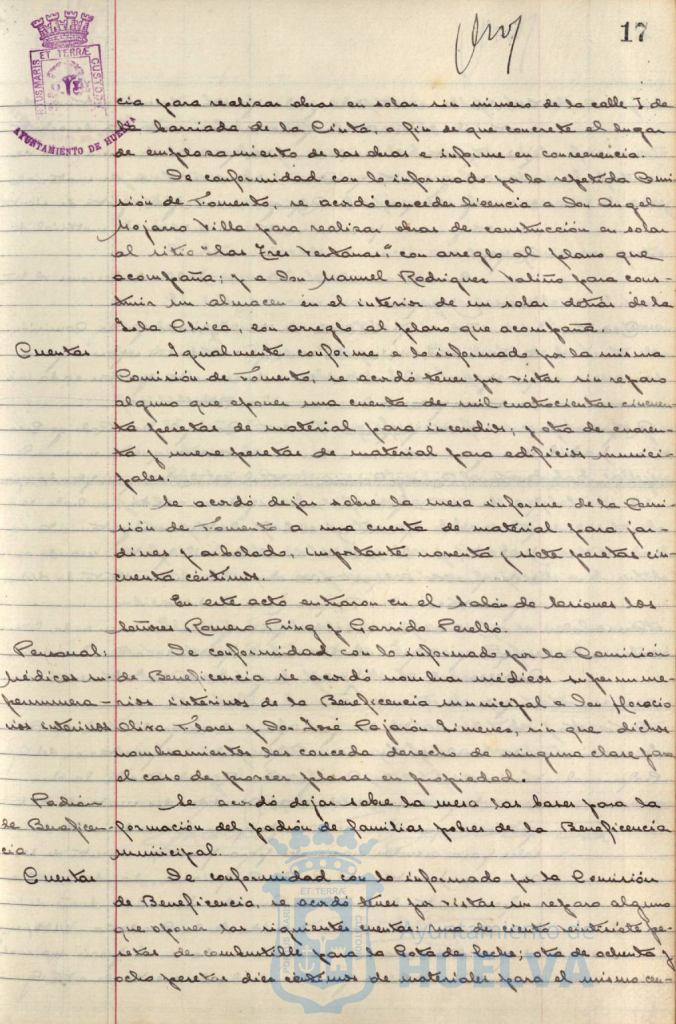 17
PORTUS MARIS ET TERRÆ CUSTODIA
AYUNTAMIENTO DE HUELVA
cia para realizar obras en solar sin número de la calle I de
la barriada de la Cinta, a fin de que concrete el lugar
de emplazamiento de las obras e informe en consecuencia.
De conformidad con lo informado por la repetida Comi-
sión de Fomento, se acordó conceder licencia a Don Angel
Mojarro Villa para realizar obras de construcción en solar
al sitio "Las Tres Ventanas", con arreglo al plano que
acompaña; y a Don Manuel Rodriguez Valiño para cons-
truir un almacen en el interior de un solar detrás de la
Isla Chica, con arreglo al plano que acompaña.
Cuentas
Igualmente conforme a lo informado por la misma
Comisión de Fomento, se acordó tener por vistas sin reparo
alguno que oponer una cuenta de mil cuatrocientas cincuen-
ta pesetas de material para incendios; y otra de cuaren-
ta y nueve pesetas de material para edificios munici-
pales.
Se acordó dejar sobre la mesa informe de la Comi-
sión de Fomento a una cuenta de material para jar-
dines y arbolado, importante noventa y siete pesetas cin-
cuenta céntimos.
En este acto entraron en el salón de sesiones los
señores Romero Pring y Garrido Perelló.
Personal:
Médicos su-
pernumera-
rios interinos
De conformidad con lo informado por la Comisión
de Beneficencia se acordó nombrar médicos supernume-
rarios interinos de la Beneficencia municipal a Don Horacio
Oliva Flores y Don José Pajarón Jimenez, sin que dichos
nombramientos les conceda derecho de ninguna clase para
el caso de proveer plazas en propiedad.
Padrón
de Beneficen-
cia
Se acordó dejar sobre la mesa las bases para la
formación del padrón de familias pobres de la Beneficencia
municipal.
Cuentas
De conformidad con lo informado por la Comisión
de Beneficencia, se acordó tener por vistas sin reparo alguno
que oponer las siguientes cuentas: una de ciento veintisiete pe-
setas de combustible para la Gota de leche; otra de ochenta y
ocho pesetas diez céntimos de materiales para el mismo cen-
PORTUS MARIS ET TERRÆ CUSTODIA
Ayuntamiento de
HUELVA